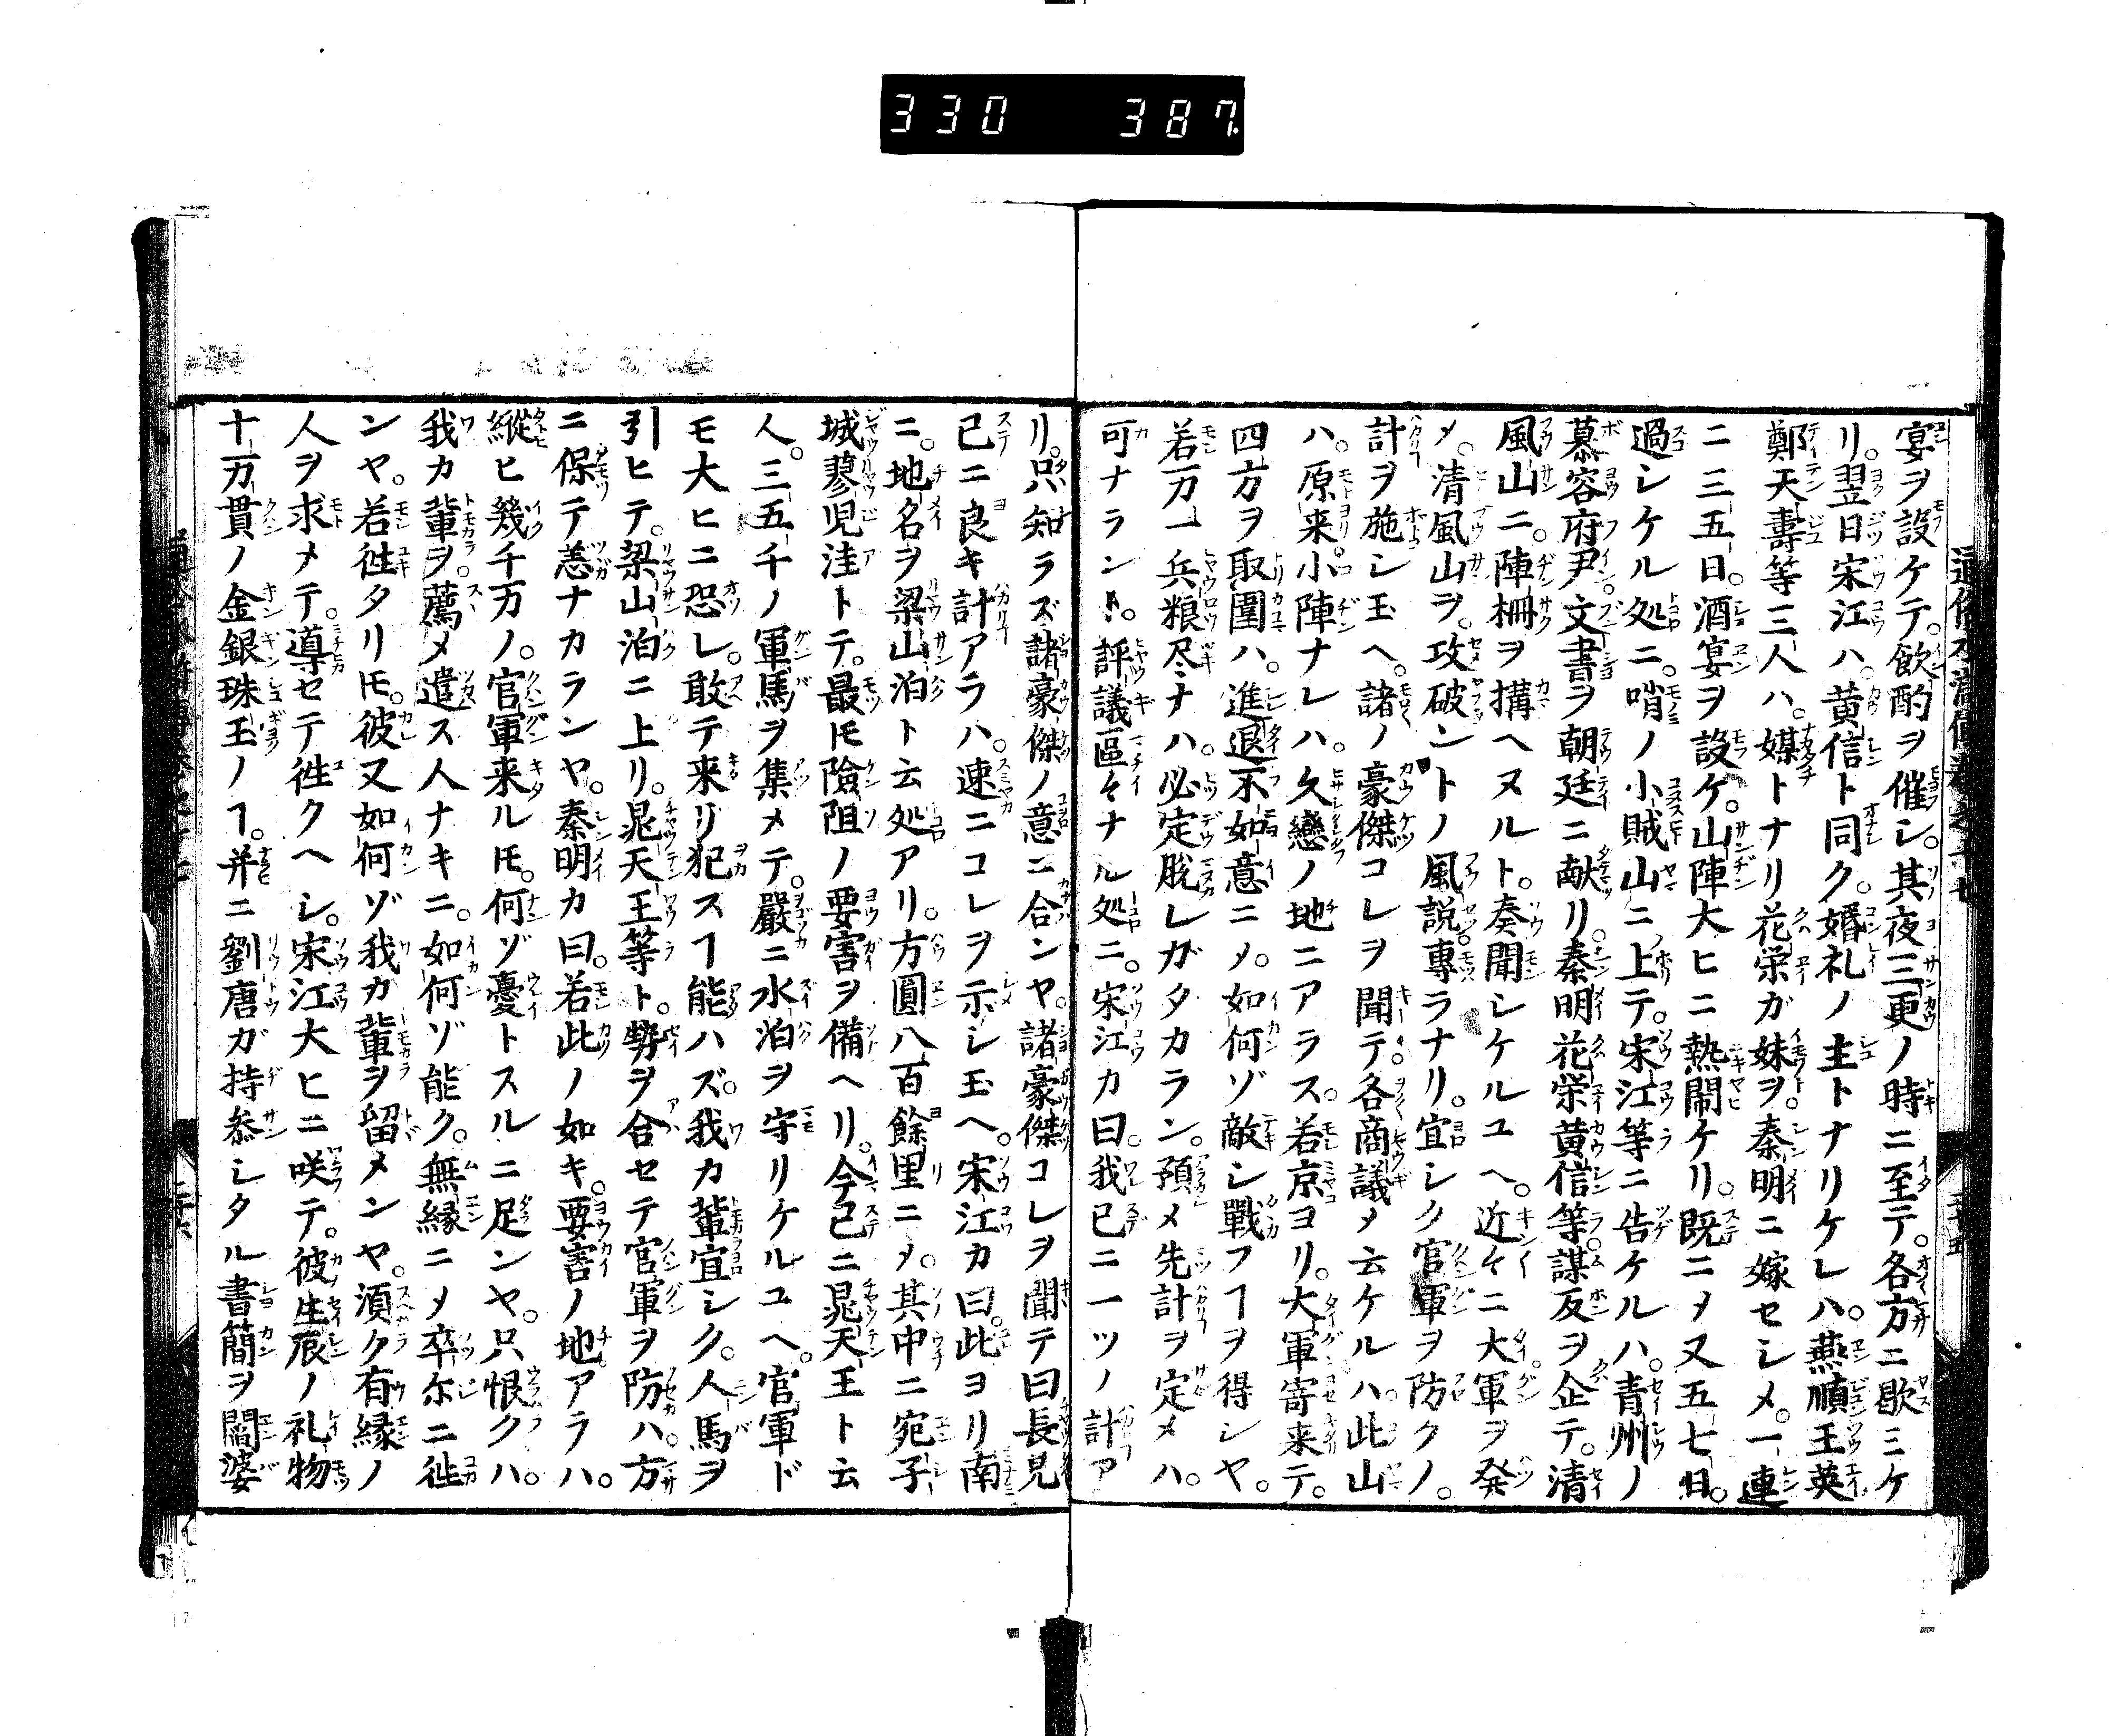 330 387
宴ヲ設ケテ。飲酌ヲ催シ。其夜三更ノ時ニ至テ。各方ニ歇ミケ
リ。翌日宋江ハ。黄信ト同ク。婚礼ノ主トナリケレハ。燕順王英
鄭天壽等三人ハ。媒トナリ花栄ガ妹ヲ。秦明ニ嫁セシメ。一連
ニ三五日。酒宴ヲ設ケ。山陣大ヒニ熱閙ケリ。既ニメ又五七日。
過シケル処ニ。哨ノ小賊山ニ上テ。宋江等ニ告ケルハ。青州ノ
慕容府尹。文書ヲ朝廷ニ献リ。秦明花栄黄信等謀反ヲ企テ。清
風山ニ。陣柵ヲ搆ヘヌルト。奏聞シケルユヘ。近々ニ大軍ヲ発
メ。清風山ヲ。攻破ントノ風説專ラナリ。宜シク官軍ヲ防クノ。
計ヲ施シ玉ヘ。諸ノ豪傑コレヲ聞テ。各商議メ云ケルハ。此山
ハ。原来小陣ナレハ。久戀ノ地ニアラス。若京ヨリ。大軍寄来テ。
四方ヲ取圍ハ。進退不如意ニメ。如何ゾ敵シ戰フヿヲ得シヤ。
若万一兵粮尽ナハ。必定脱レガタカラン。預メ先計ヲ定メハ。
可ナラント。評議區々ナル処ニ。宋江カ曰。我已ニ一ツノ計ア
リ。只知ラズ諸豪傑ノ意ニ合ンヤ。諸豪傑コレヲ聞テ曰長兄
已ニ良キ計アラハ。速ニコレヲ示シ玉ヘ。宋江カ曰。此ヨリ南
ニ。地名ヲ梁山泊ト云処アリ。方圓八百餘里ニメ。其中ニ宛子
城蓼児洼トテ。最モ險阻ノ要害ヲ備ヘリ。今已ニ晁天王ト云
人。三五千ノ軍馬ヲ集メテ。嚴ニ水泊ヲ守リケルユヘ。官軍ド
モ大ヒニ恐レ。敢テ来リ犯スヿ能ハズ。我カ輩宜シク。人馬ヲ
引ヒテ。梁山泊ニ上リ。晁天王等ト。勢ヲ合セテ官軍ヲ防ハ。方
ニ保テ恙ナカランヤ。秦明カ曰。若此ノ如キ。要害ノ地アラハ。
縱ヒ幾千万ノ。官軍来ルモ。何ゾ憂トスルニ足ンヤ。只恨クハ。
我カ輩ヲ。薦メ遣ス人ナキニ。如何ゾ能ク。無縁ニメ卒尓ニ徃
ンヤ。若徃タリモ。彼又如何ゾ我カ輩ヲ留メンヤ。須ク有縁ノ
人ヲ求メテ。導セテ徃クヘシ。宋江大ヒニ咲テ。彼生辰ノ礼物
十一万貫ノ金銀珠玉ノヿ。并ニ劉唐ガ持叅シタル書簡ヲ閻婆